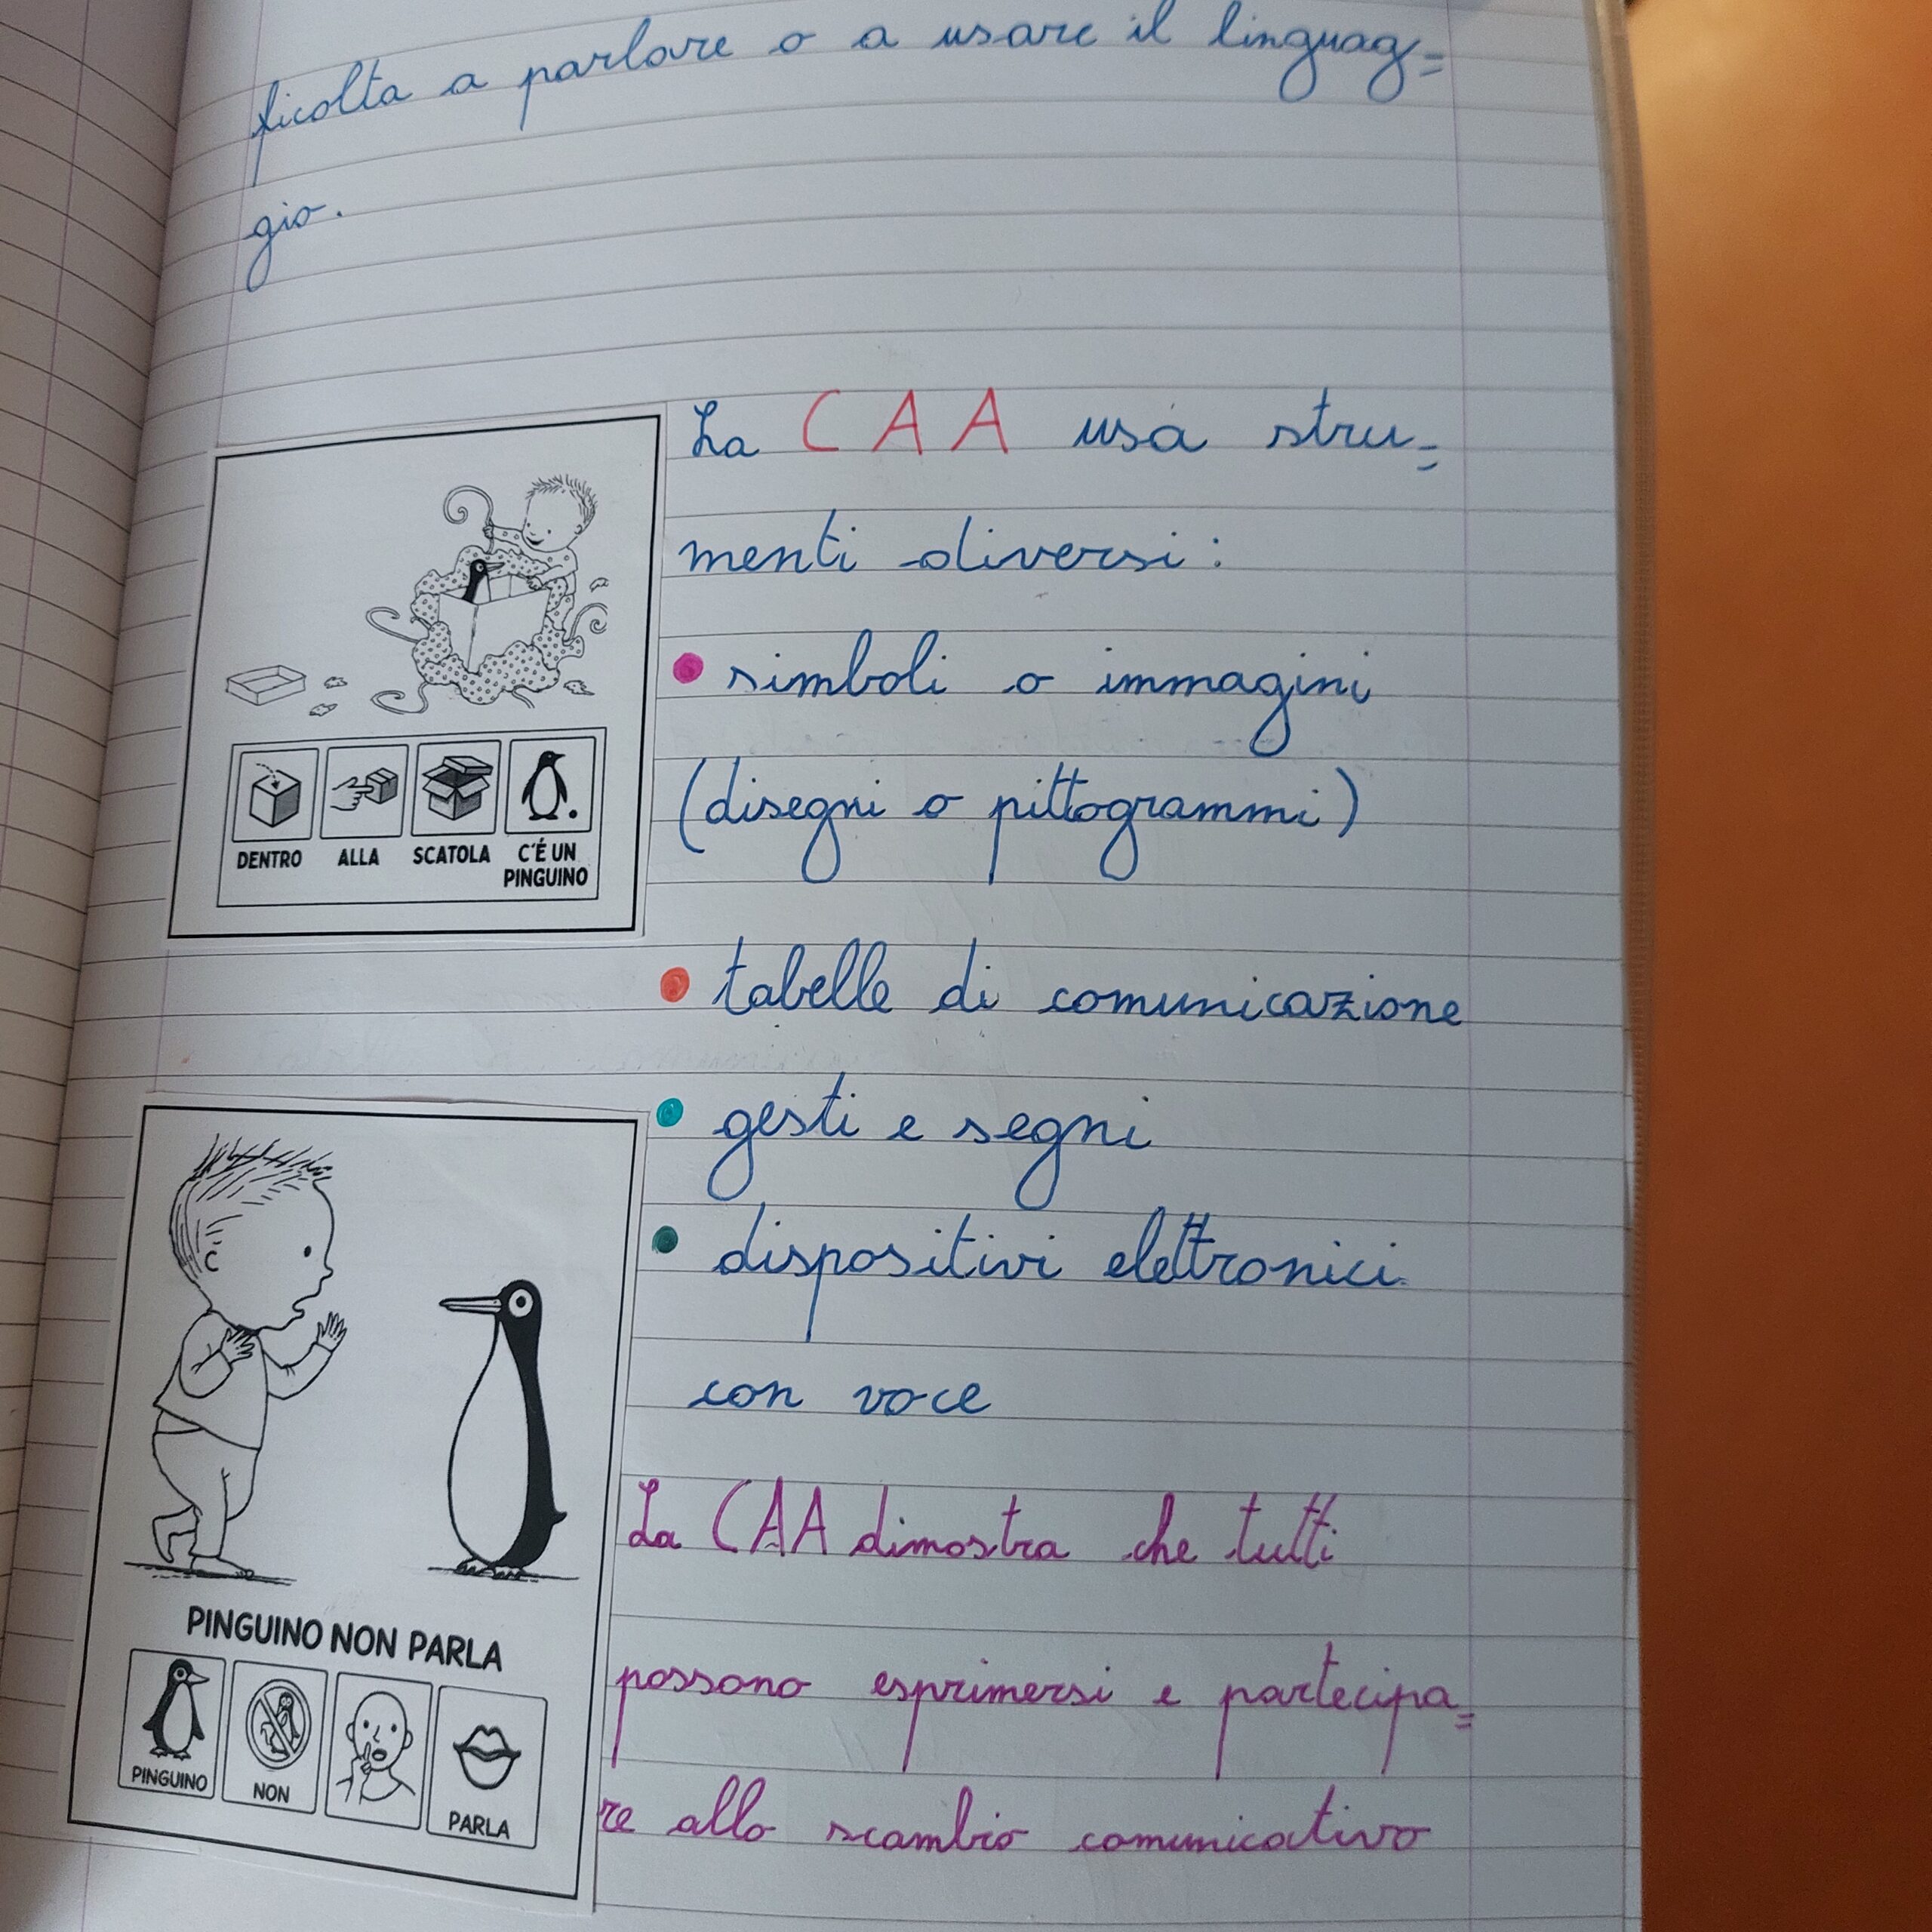 ficolta a parlare o a usare il linguag=
gio.
La CAA usa stru=
menti diversi:
• simboli o immagini
(disegni o pittogrammi)
DENTRO ALLA SCATOLA C'É UN
PINGUINO
• tabelle di comunicazione
• gesti e segni
• dispositivi elettronici
con voce
La CAA dimostra che tutti
possono esprimersi e partecipa=
re allo scambio comunicativo
PINGUINO NON PARLA
PINGUINO NON PARLA